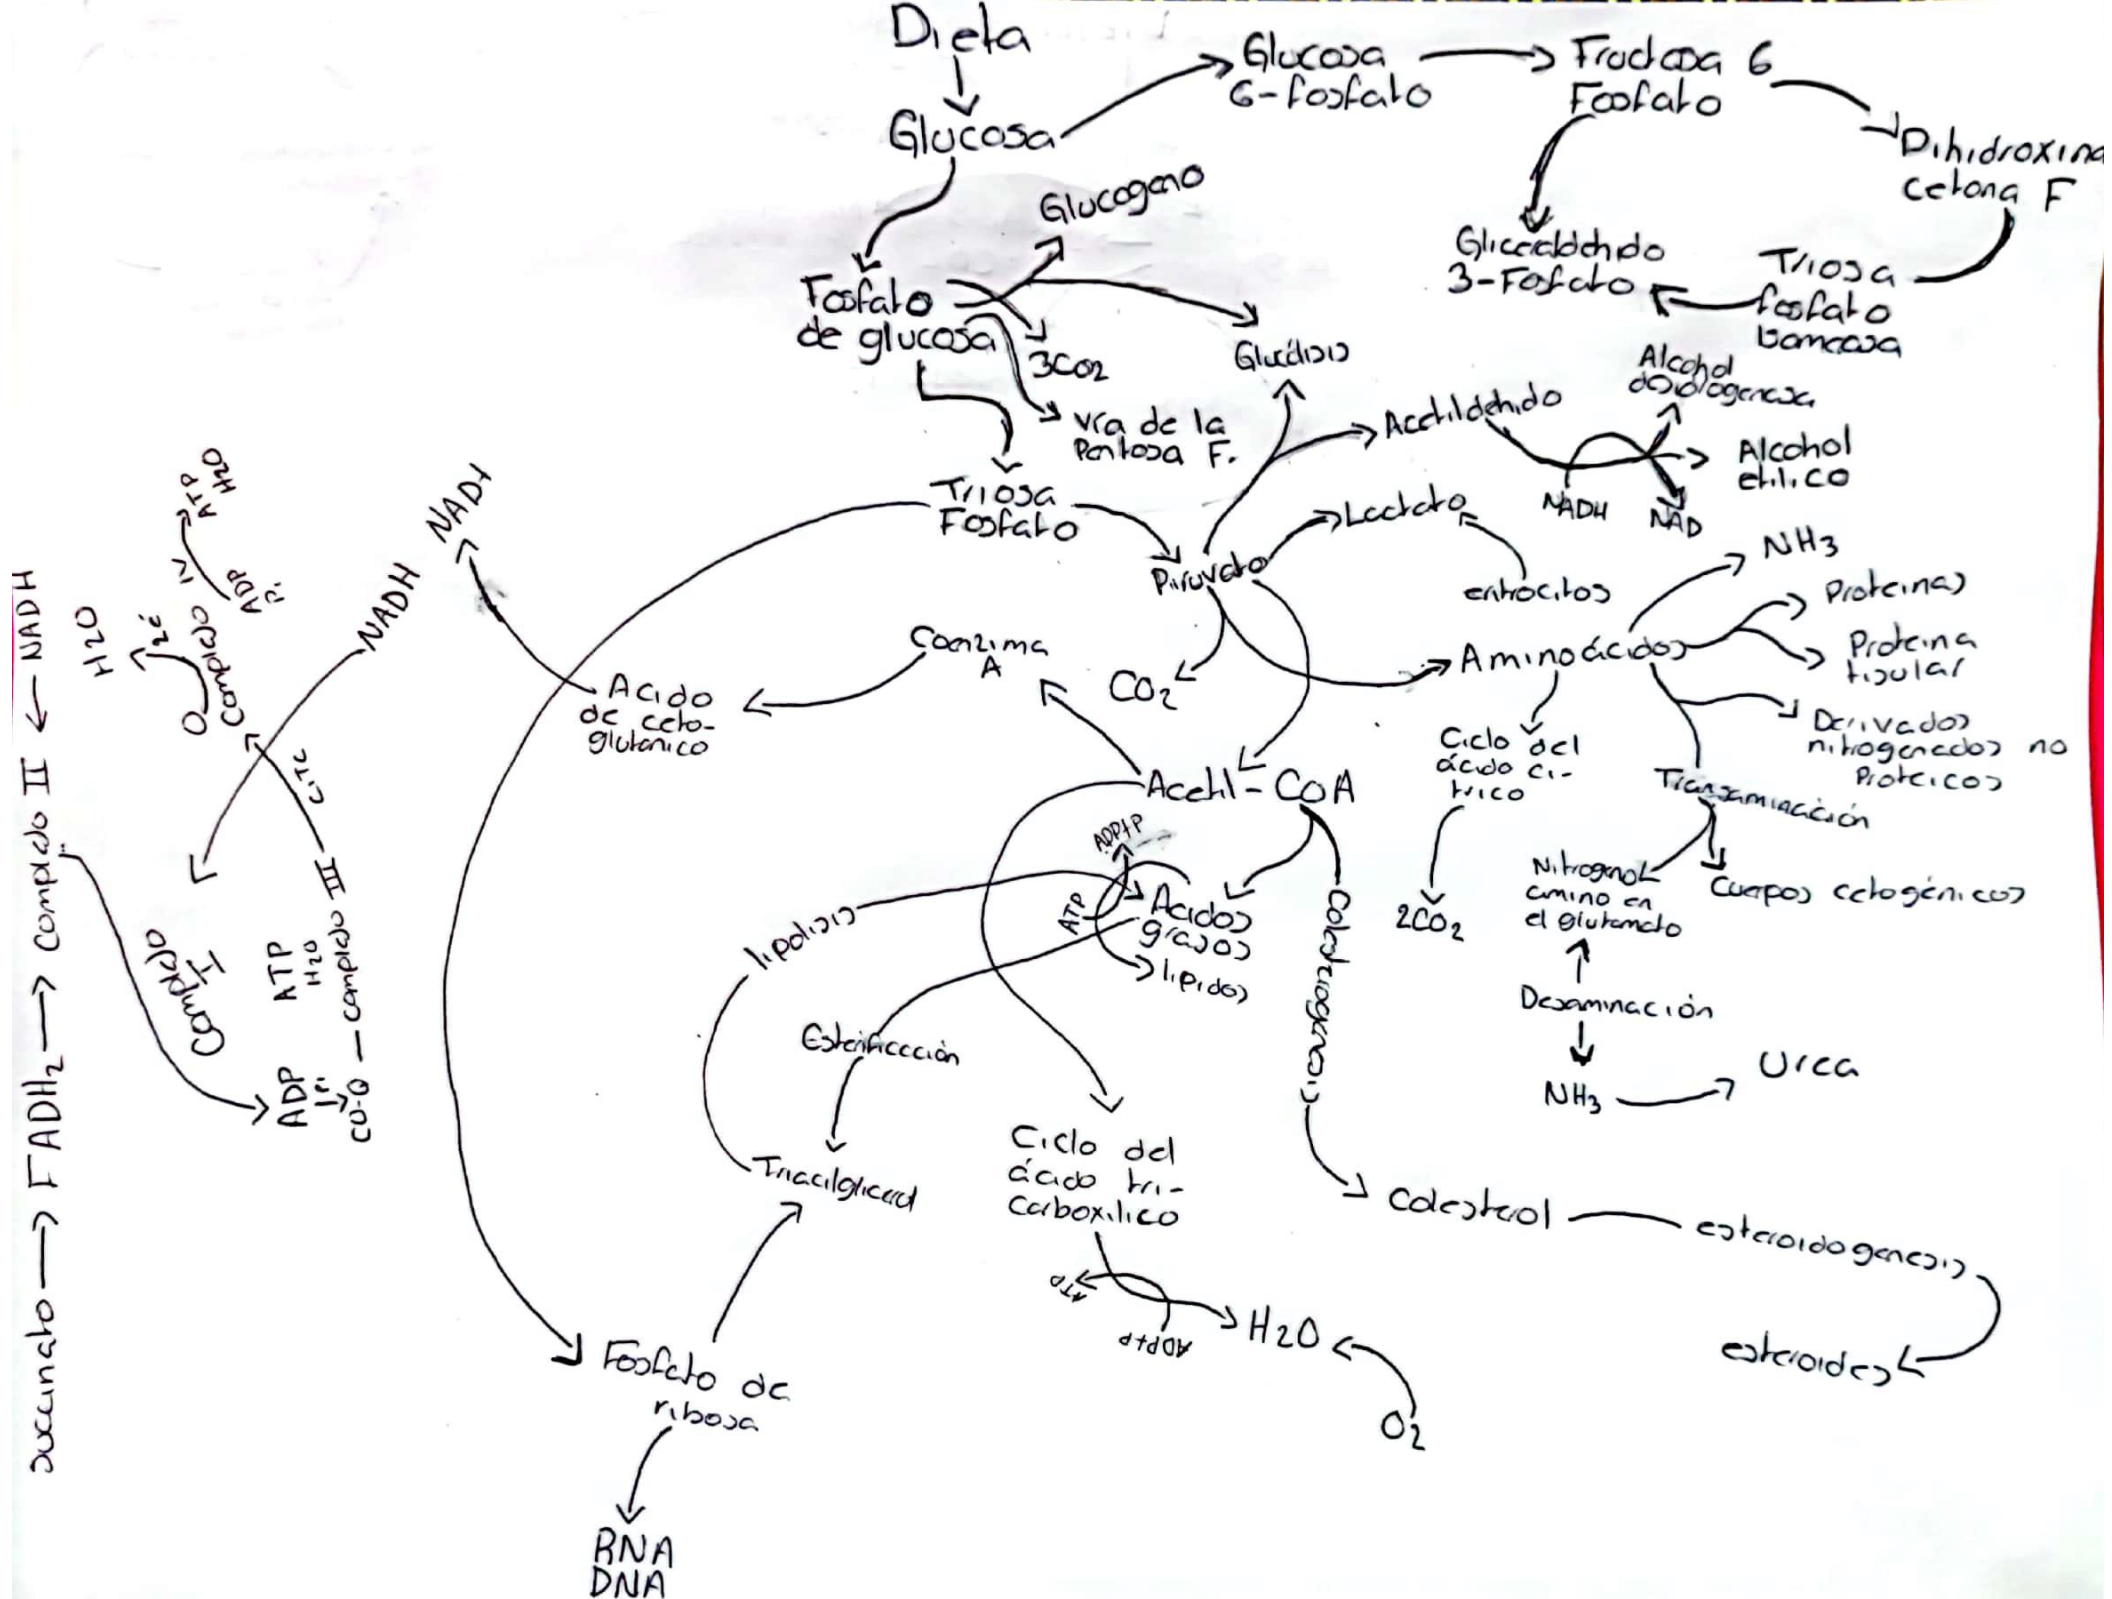 Dieta
Glucosa
Glucosa
6-fosfato
Fructosa 6
Fosfato
Dihidroxina
cetona F
Triosa
fosfato
Isomerasa
Gliceraldehido
3-Fosfato
Glucogeno
Fosfato
de glucosa
3CO2
Glucólisis
vía de la
Pentosa F.
Triosa
Fosfato
Piruvato
Acetildehido
Alcohol
Alcohol
etilico
NADH
NAD
Lactato
eritrocitos
NH3
Aminoácidos
Proteinas
Proteina
tisular
Derivados
nitrogenados no
Proteicos
Transaminación
Cuerpos cetogénicos
Nitrogeno
amino en
el glutamato
Desaminación
NH3
Urea
Ciclo del
ácido ci-
trico
2CO2
CO2
Coenzima
A
Acido
de ceto-
glutanico
NADH
NADH
Acetil-CoA
ADP+P
ATP
Acidos
grasos
lipidos
lipolisis
Esterificación
Triacilglicerol
Colesterogenesis
Colesterol
esteroidogenesis
esteroides
Ciclo del
ácido tri-
Carboxilico
ATP
ADP+P
H2O
O2
Fosfato de
ribosa
RNA
DNA
succinato → FADH2 → Complejo II ← NADH
Complejo
I
ADP
Pi
ATP
H2O
CO-Q — Complejo III — CITC
Complejo IV
O
2é
H2O
ADP
Pi
ATP
H2O